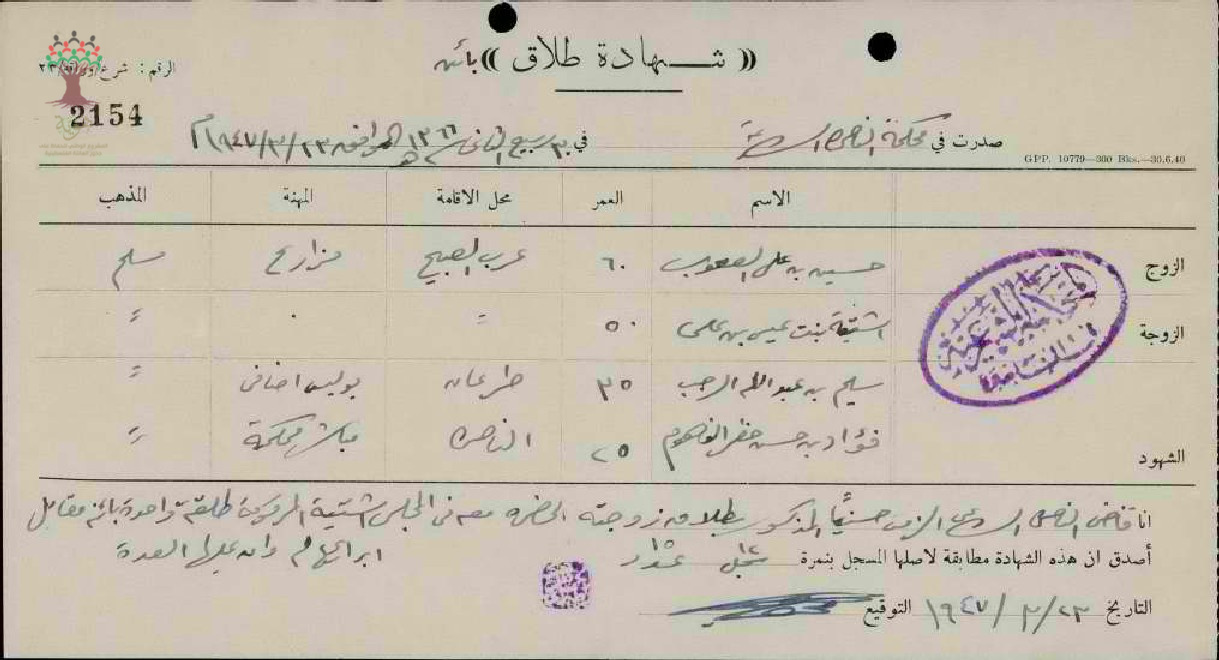 «شهادة طلاق» بائن
الرقم: شرع/
2154
صدرت في محكمة الناصرة الشرعية في ٣٠ ربيع الثاني سنة ١٣٦٦ هـ الموافق ٢٣/٣/١٩٤٧ م
G.P.P. 10779—300 Bks.—30.6.40
الاسم العمر محل الاقامة المهنة المذهب
الزوج حسين بن علي اليعقوب ٦٠ عرب الصبيح مزارع مسلم
الزوجة اشتية بنت عيسى بن علي ٥٠ " . "
سليم بن عبدالله الرجب ٣٥ طرعان بوليس اضافي "
الشهود فؤاد بن حسن الفاهوم ٢٥ الناصرة محكمة "
انا قاضي الناصرة الشرعي حسين المذكور بطلاق زوجته معه في المجلس اشتية المرقومة طلقة واحدة بائنة مقابل
ابرائها له وان عليها العدة
أصدق ان هذه الشهادة مطابقة لاصلها المسجل بنمرة
التاريخ ٢٣/٣/١٩٤٧ التوقيع